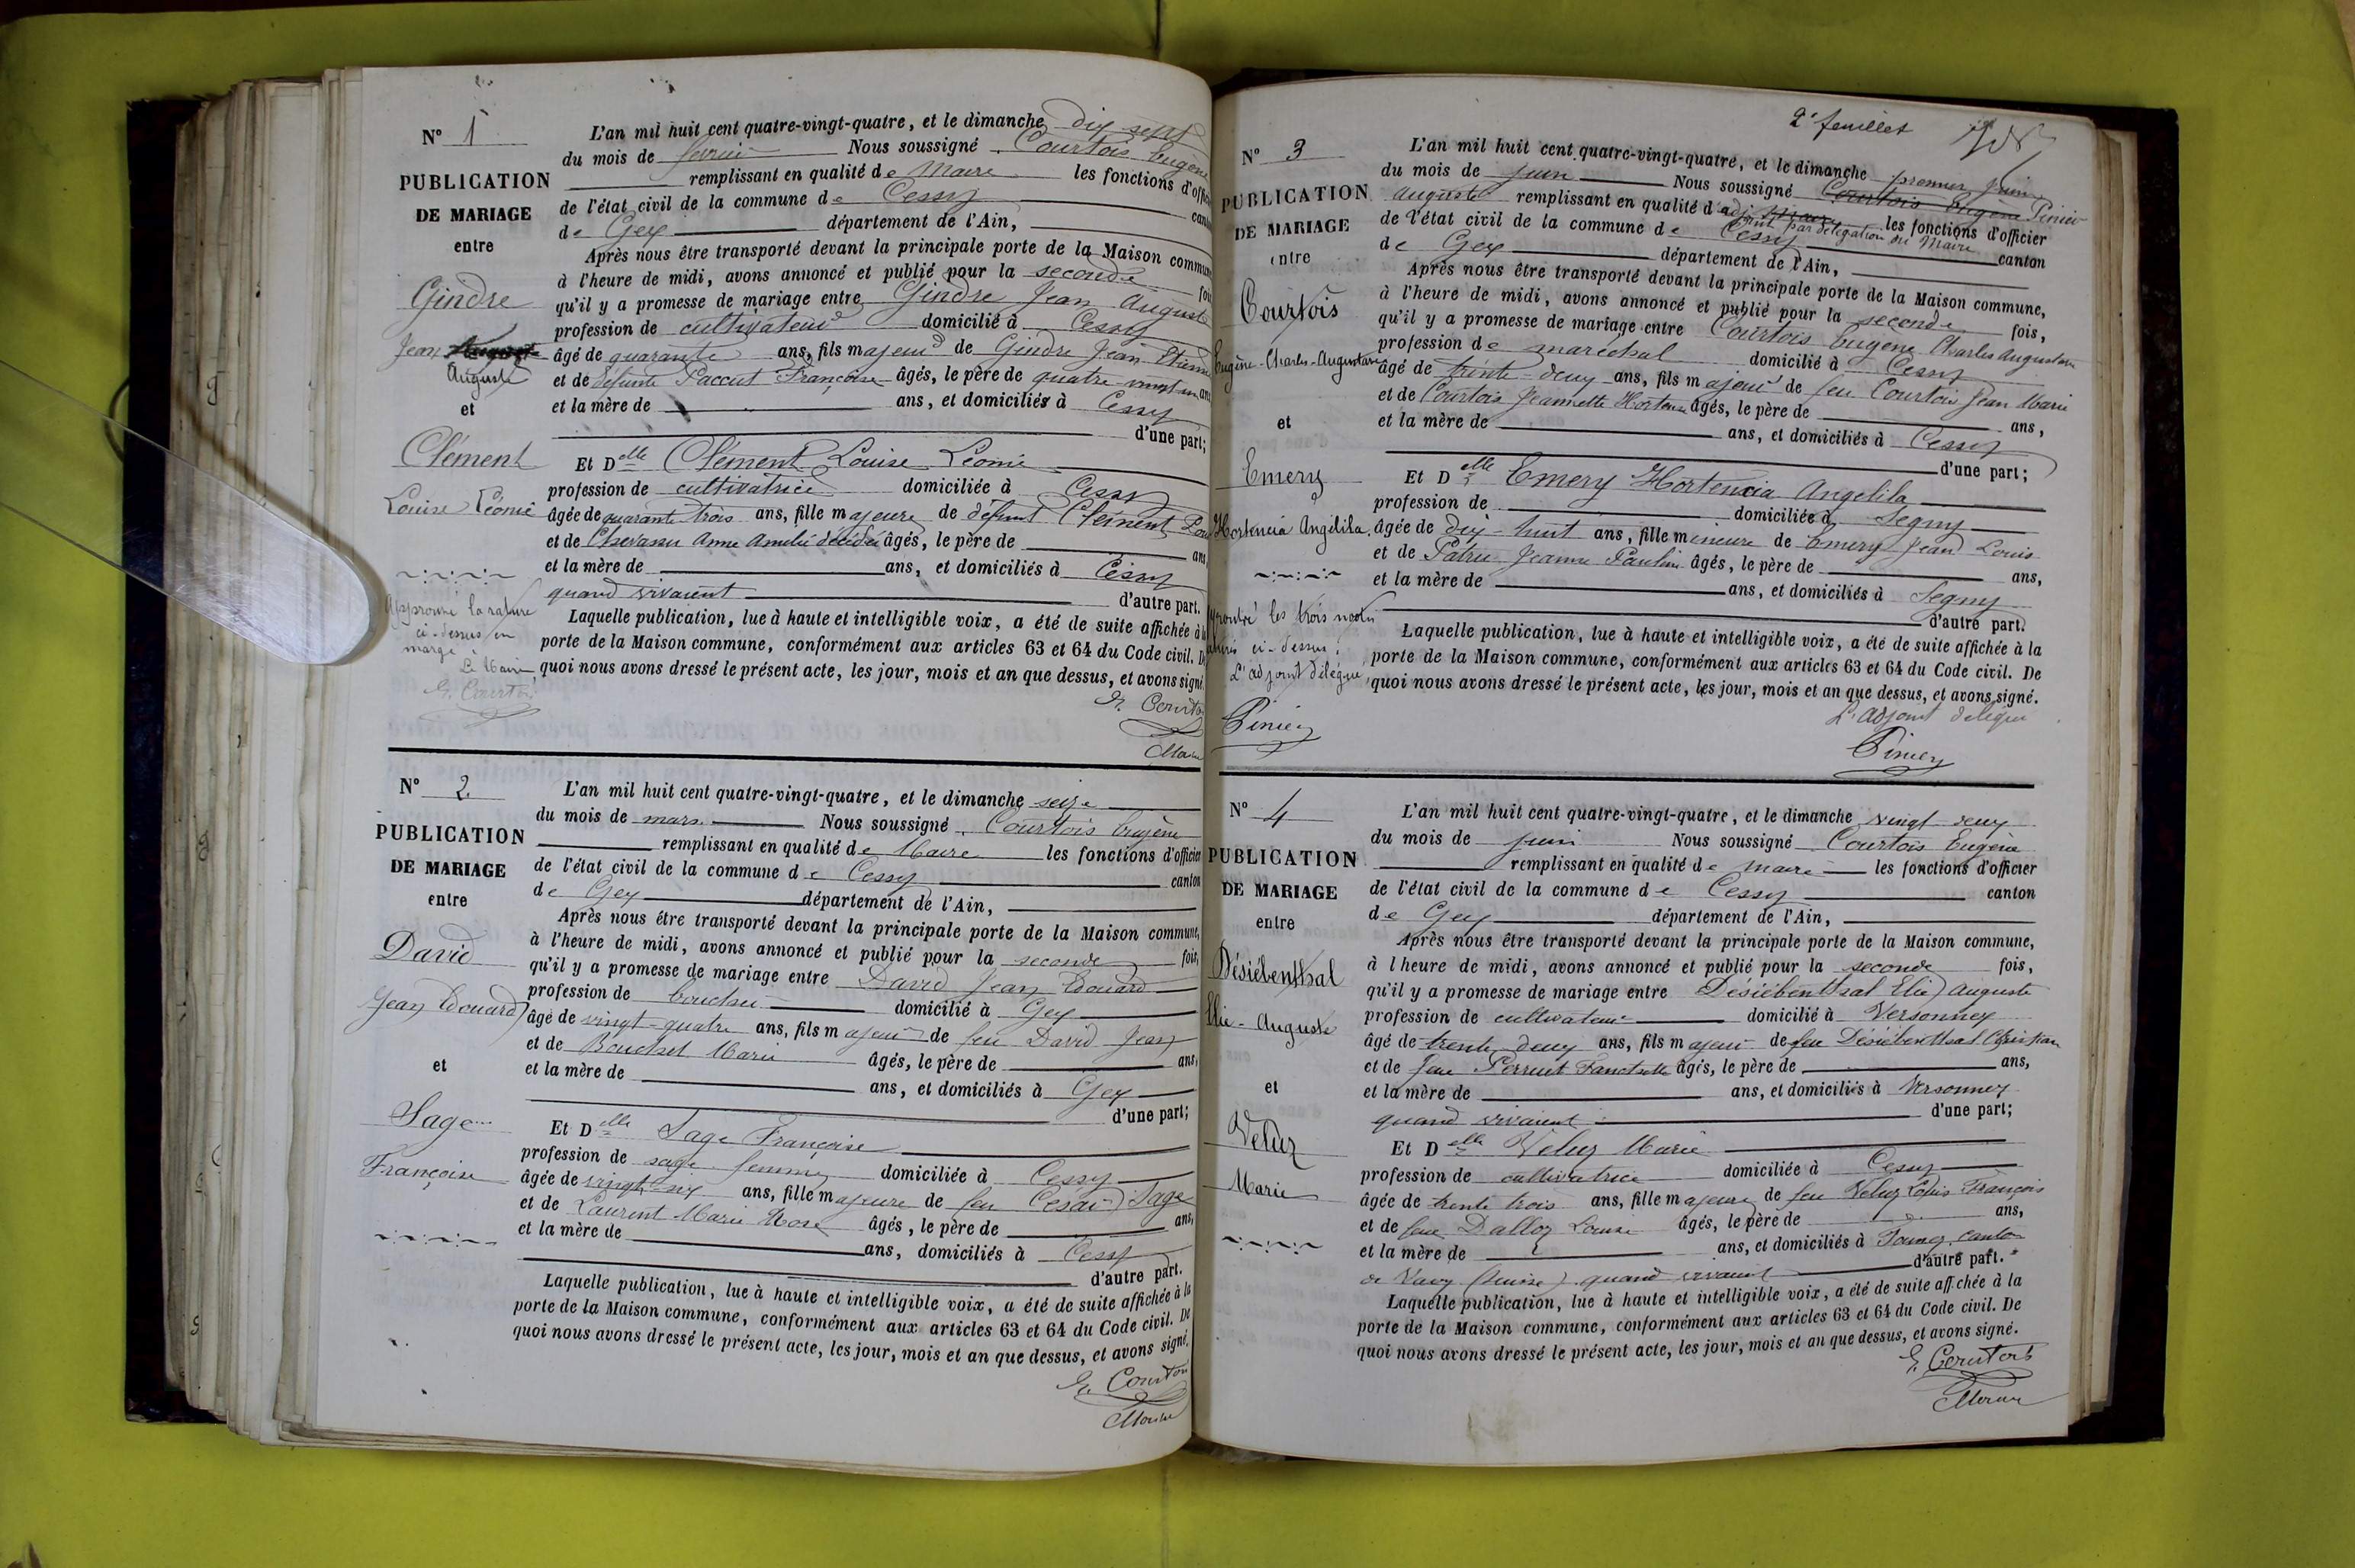 N° 1
PUBLICATION
DE MARIAGE
entre
Gindre
Jean
Auguste
et
Clément
Louise Léonie
Approuvé la rature
ci-dessus en
marge
Le Maire,
E. Courtois
L'an mil huit cent quatre-vingt-quatre, et le dimanche dix sept
du mois de février Nous soussigné Courtois Eugène
remplissant en qualité de Maire les fonctions d'offici
de l'état civil de la commune de Cessy canto
de Gex département de l'Ain,
Après nous être transporté devant la principale porte de la Maison commun
à l'heure de midi, avons annoncé et publié pour la seconde foi
qu'il y a promesse de mariage entre Gindre Jean Auguste
profession de cultivateur domicilié à Cessy
âgé de quarante ans, fils majeur de Gindre Jean Etienne
et de défunte Paccut Françoise âgés, le père de quatre-vingt-un an
et la mère de ans, et domiciliés à Cessy
d'une part;
Et Delle Clément Louise Léonie
profession de cultivatrice domiciliée à Cessy
âgée de quarante trois ans, fille majeure de défunt Clément
et de Chevassu Anne Amélie décédée âgés, le père de ans
et la mère de ans, et domiciliés à Cessy
quand vivaient d'autre part.
Laquelle publication, lue à haute et intelligible voix, a été de suite affichée à la
porte de la Maison commune, conformément aux articles 63 et 64 du Code civil. De
quoi nous avons dressé le présent acte, les jour, mois et an que dessus, et avons signé.
E. Courtois
Maire
N° 2
PUBLICATION
DE MARIAGE
entre
David
Jean Edouard
et
Sage
Françoise
L'an mil huit cent quatre-vingt-quatre, et le dimanche seize
du mois de mars Nous soussigné Courtois Eugène
remplissant en qualité de Maire les fonctions d'officier
de l'état civil de la commune de Cessy canton
de Gex département de l'Ain,
Après nous être transporté devant la principale porte de la Maison commune,
à l'heure de midi, avons annoncé et publié pour la seconde fois,
qu'il y a promesse de mariage entre David Jean Edouard
profession de boucher domicilié à Gex
âgé de vingt-quatre ans, fils majeur de feu David Jean
et de Bouchet Marie âgés, le père de ans,
et la mère de ans, et domiciliés à Gex
d'une part;
Et Delle Sage Françoise
profession de sage femme domiciliée à Cessy
âgée de vingt-six ans, fille majeure de feu César Sage
et de Laurent Marie Rose âgés, le père de ans,
et la mère de ans, domiciliés à Cessy
d'autre part.
Laquelle publication, lue à haute et intelligible voix, a été de suite affichée à la
porte de la Maison commune, conformément aux articles 63 et 64 du Code civil. De
quoi nous avons dressé le présent acte, les jour, mois et an que dessus, et avons signé.
E. Courtois
Maire
2e feuillet
N° 3
PUBLICATION
DE MARIAGE
entre
Courtois
Eugène-Charles-Augustave
et
Emery
Hortencia Angélila.
les trois mots
ci-dessus.
L'adjoint délégué,
Pinier
L'an mil huit cent quatre-vingt-quatre, et le dimanche premier juin
du mois de juin Nous soussigné Courtois Eugène Pinier
Auguste remplissant en qualité d'adjoint par délégation du Maire les fonctions d'officier
de l'état civil de la commune de Cessy canton
de Gex département de l'Ain,
Après nous être transporté devant la principale porte de la Maison commune,
à l'heure de midi, avons annoncé et publié pour la seconde fois,
qu'il y a promesse de mariage entre Courtois Eugène Charles Augustave
profession de maréchal domicilié à Cessy
âgé de trente-deux ans, fils majeur de feu Courtois Jean Marie
et de Courtois Jeannette Hortense âgés, le père de ans,
et la mère de ans, et domiciliés à Cessy
d'une part;
Et Delle Emery Hortencia Angelila
profession de domiciliée à Segny
âgée de dix-huit ans, fille mineure de Emery Jean Louis
et de Patru Jeanne Pauline âgés, le père de ans,
et la mère de ans, et domiciliés à Segny
d'autre part.
Laquelle publication, lue à haute et intelligible voix, a été de suite affichée à la
porte de la Maison commune, conformément aux articles 63 et 64 du Code civil. De
quoi nous avons dressé le présent acte, les jour, mois et an que dessus, et avons signé.
L'adjoint délégué
Pinier
N° 4
PUBLICATION
DE MARIAGE
entre
Désiébenthal
Elie-Auguste
et
Veluz
Marie
L'an mil huit cent quatre-vingt-quatre, et le dimanche vingt deux
du mois de juin Nous soussigné Courtois Eugène
remplissant en qualité de maire les fonctions d'officier
de l'état civil de la commune de Cessy canton
de Gex département de l'Ain,
Après nous être transporté devant la principale porte de la Maison commune,
à l'heure de midi, avons annoncé et publié pour la seconde fois,
qu'il y a promesse de mariage entre Désiébenthal Elie Auguste
profession de cultivateur domicilié à Versonnex
âgé de trente deux ans, fils majeur de feu Désiébenthal Christian
et de feue Perruet Fanchette âgés, le père de ans,
et la mère de ans, et domiciliés à Versonnex
quand vivaient d'une part;
Et Delle Veluz Marie
profession de cultivatrice domiciliée à Cessy
âgée de trente trois ans, fille majeure de feu Veluz Louis François
et de feue Dalloz Louise âgés, le père de ans,
et la mère de ans, et domiciliés à canton
de (Suisse) quand vivaient d'autre part.
Laquelle publication, lue à haute et intelligible voix, a été de suite affichée à la
porte de la Maison commune, conformément aux articles 63 et 64 du Code civil. De
quoi nous avons dressé le présent acte, les jour, mois et an que dessus, et avons signé.
E. Courtois
Maire